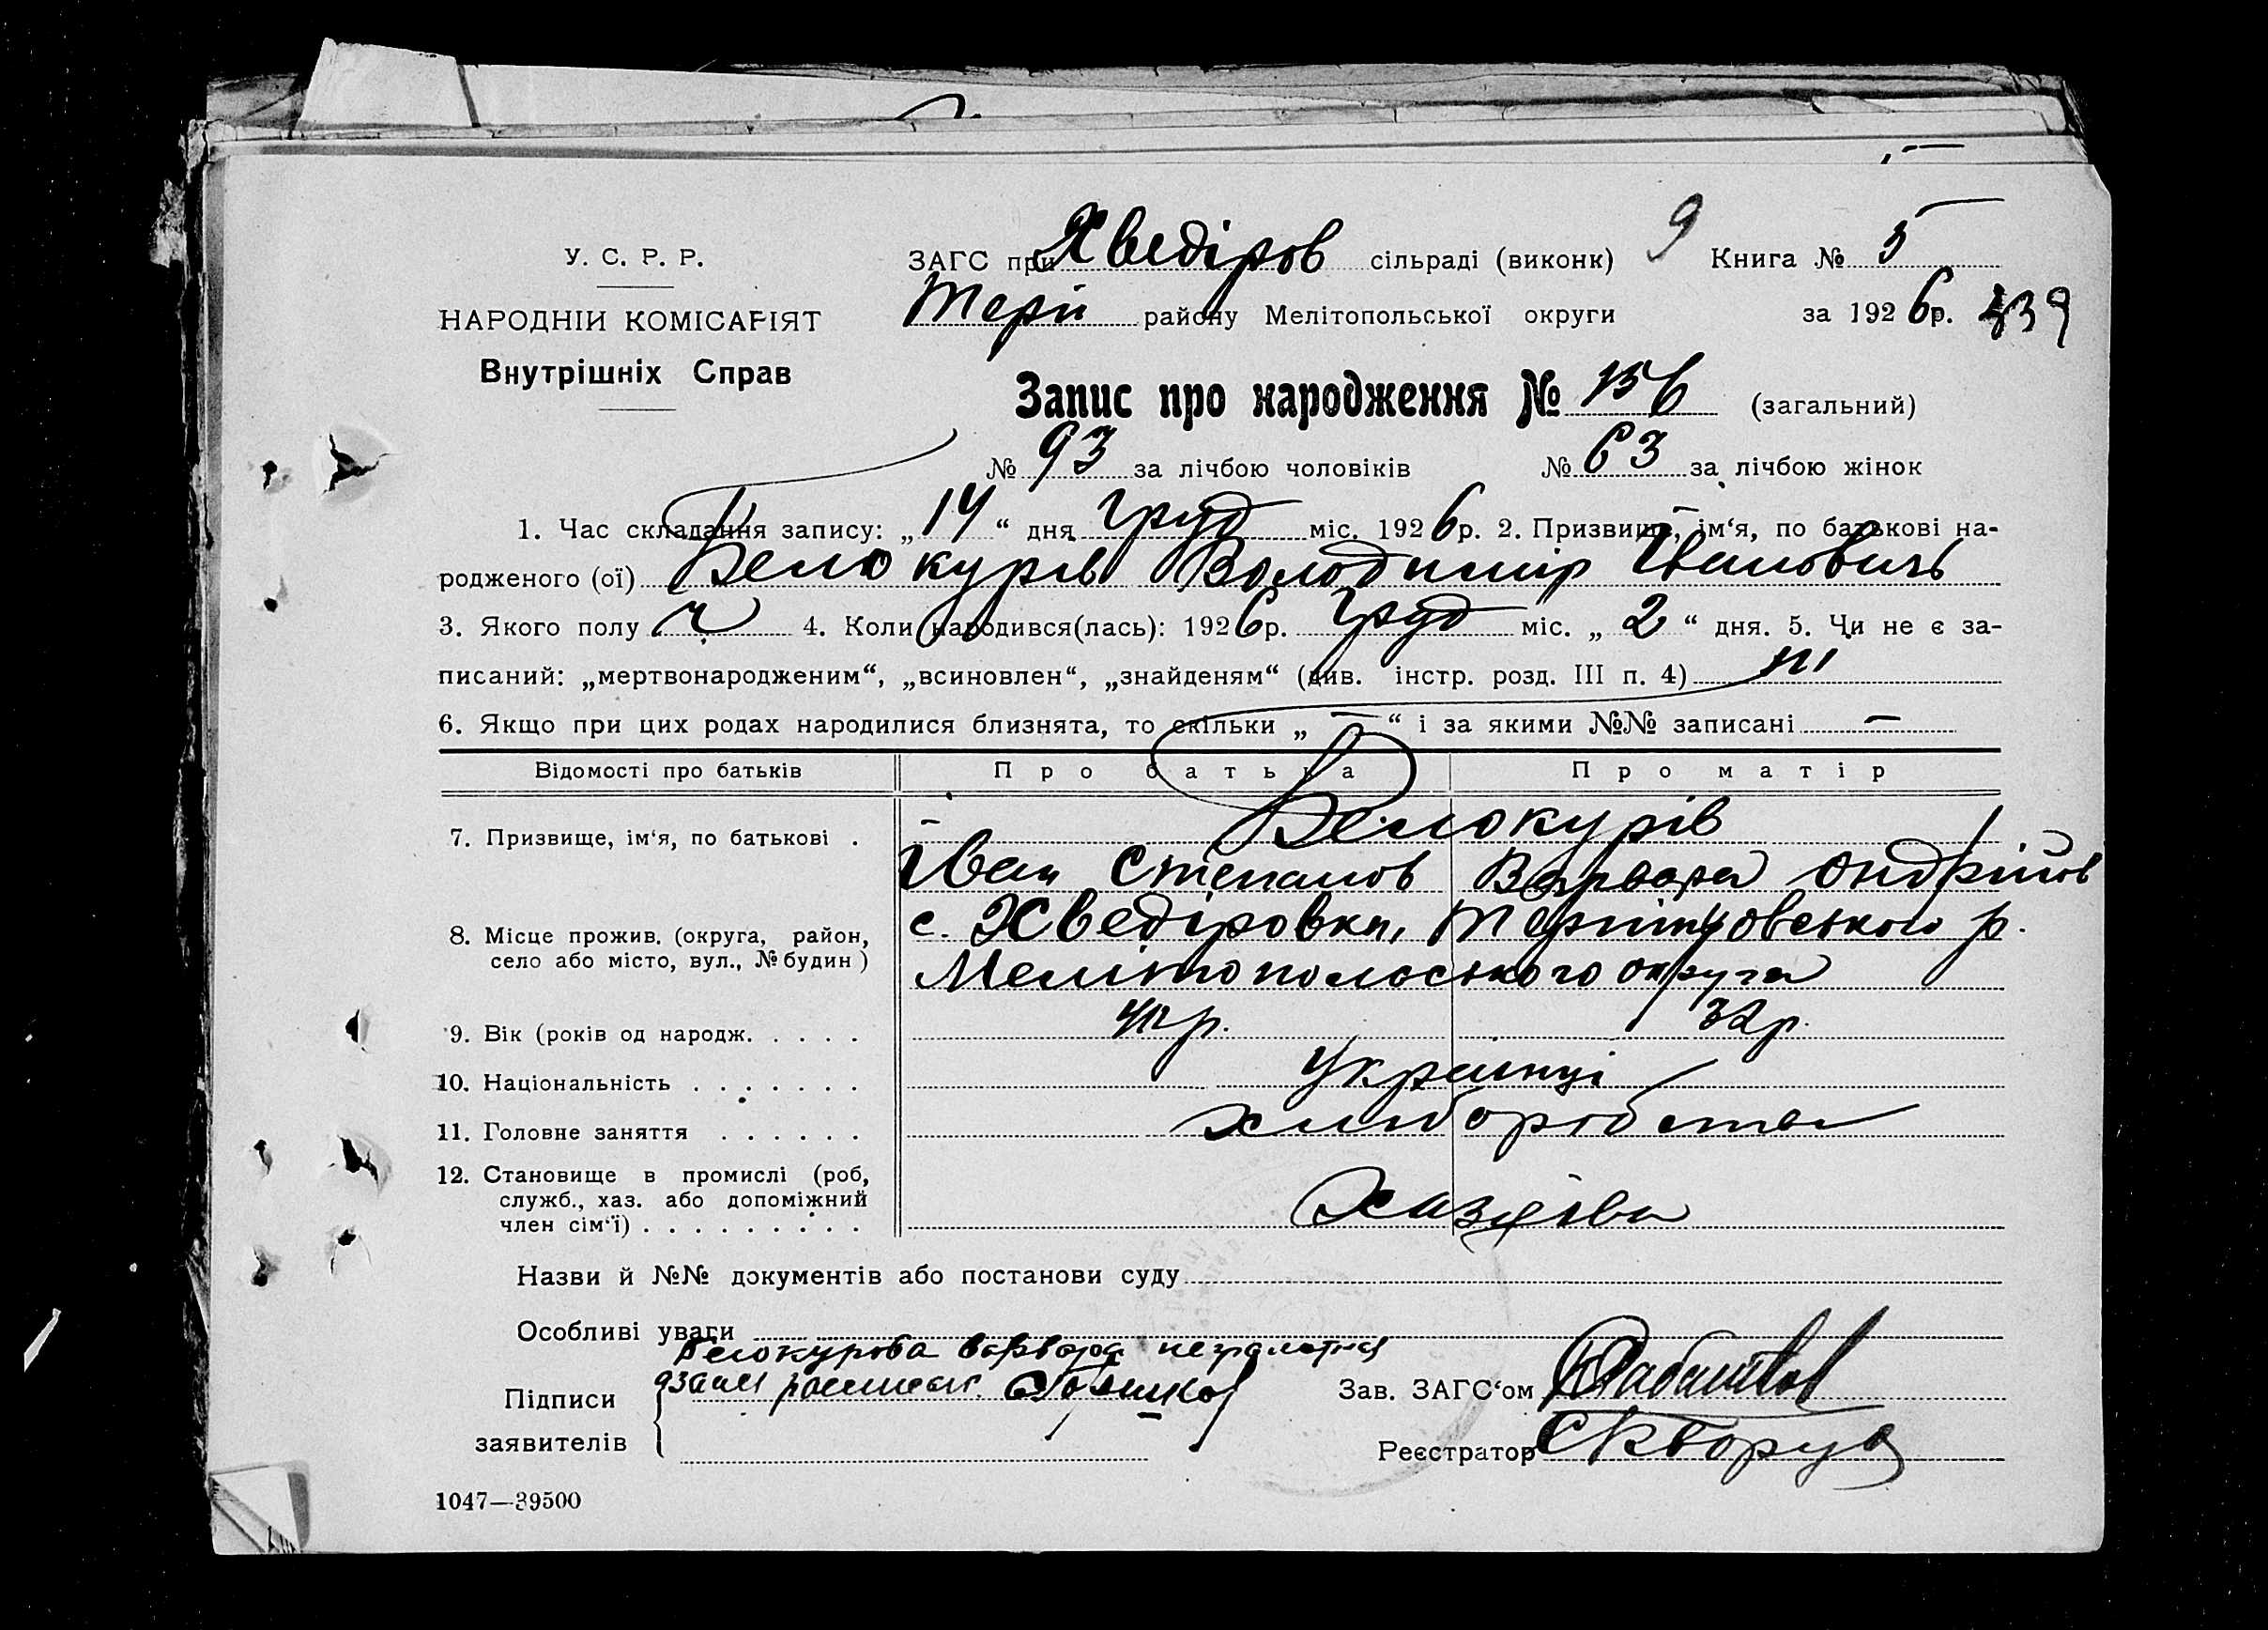 У. С. Р. Р.
НАРОДНІЙ КОМІСАРІЯТ
Внутрішніх Справ
ЗАГС при Хведіров сільраді (виконк) 9 Книга № 5
Терп району Мелітопольської округи за 1926р. 339
Запис про народження № 156 (загальний)
№ 93 за лічбою чоловіків № 63 за лічбою жінок
1. Час складання запису: „14“ дня груд міс. 1926р. 2. Призвище, ім‘я, по батькові на-
родженого (ої) Белокурів Володимір Іванович
3. Якого полу ч 4. Коли народився(лась): 1926р. груд міс. „2“ дня. 5. Чи не є за-
писаний: „мертвонародженим“, „всиновлен“, „знайденям“ (див. інстр. розд. III п. 4) ні
6. Якщо при цих родах народилися близнята, то скільки „—“ і за якими №№ записані —
Відомості про батьків Про батька Про матір
7. Призвище, ім‘я, по батькові . Белокурів
Іван Степанов Варвара Ондріїов
8. Місце прожив. (округа, район, село або місто, вул., № будин) с. Хведіровка, р.
Мелітопольського округа
9. Вік (років од народж. . . . . р. 32 р.
10. Національність . . . . . . . Українці
11. Головне заняття . . . . . . хліборобства
12. Становище в промислі (роб,
служб., хаз. або допоміжний
член сім‘ї) . . . . . . . . . Хазяїва
Назви й №№ документів або постанови суду
Особливі уваги
Белокурова Варвара неграмотна
Підписи Зав. ЗАГС‘ом
заявителів Реєстратор
1047—39500